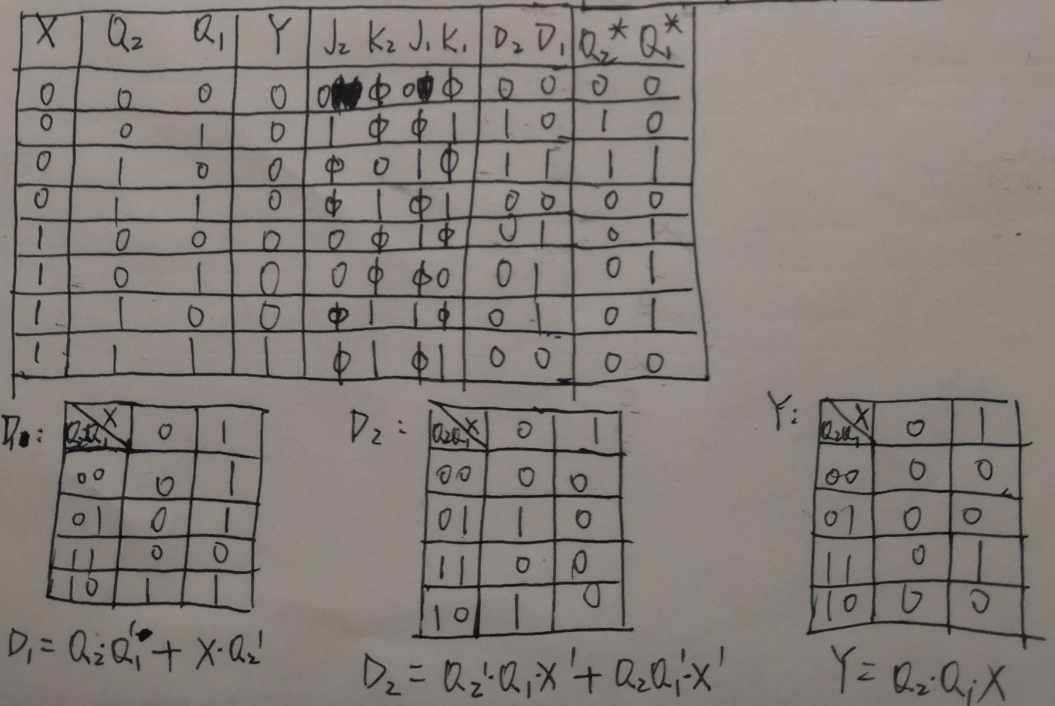 X Q₂ Q₁ Y J₂ K₂ J₁ K₁ D₂ D₁ Q₂* Q₁*
0 0 0 0 0 ϕ 0 ϕ 0 0 0 0
0 0 1 0 1 ϕ ϕ 1 1 0 1 0
0 1 0 0 ϕ 0 1 ϕ 1 1 1 1
0 1 1 0 ϕ 1 ϕ 1 0 0 0 0
1 0 0 0 0 ϕ 1 ϕ 0 1 0 1
1 0 1 0 0 ϕ ϕ 0 0 1 0 1
1 1 0 0 ϕ 1 1 ϕ 0 1 0 1
1 1 1 1 ϕ 1 ϕ 1 0 0 0 0
D₁:
Q₂Q₁ X 0 1
00 0 1
01 0 1
11 0 0
10 1 1
D₁ = Q₂·Q₁' + X·Q₂'
D₂:
Q₂Q₁ X 0 1
00 0 0
01 1 0
11 0 0
10 1 0
D₂ = Q₂'·Q₁·X' + Q₂Q₁'·X'
Y:
Q₂Q₁ X 0 1
00 0 0
01 0 0
11 0 1
10 0 0
Y = Q₂·Q₁·X